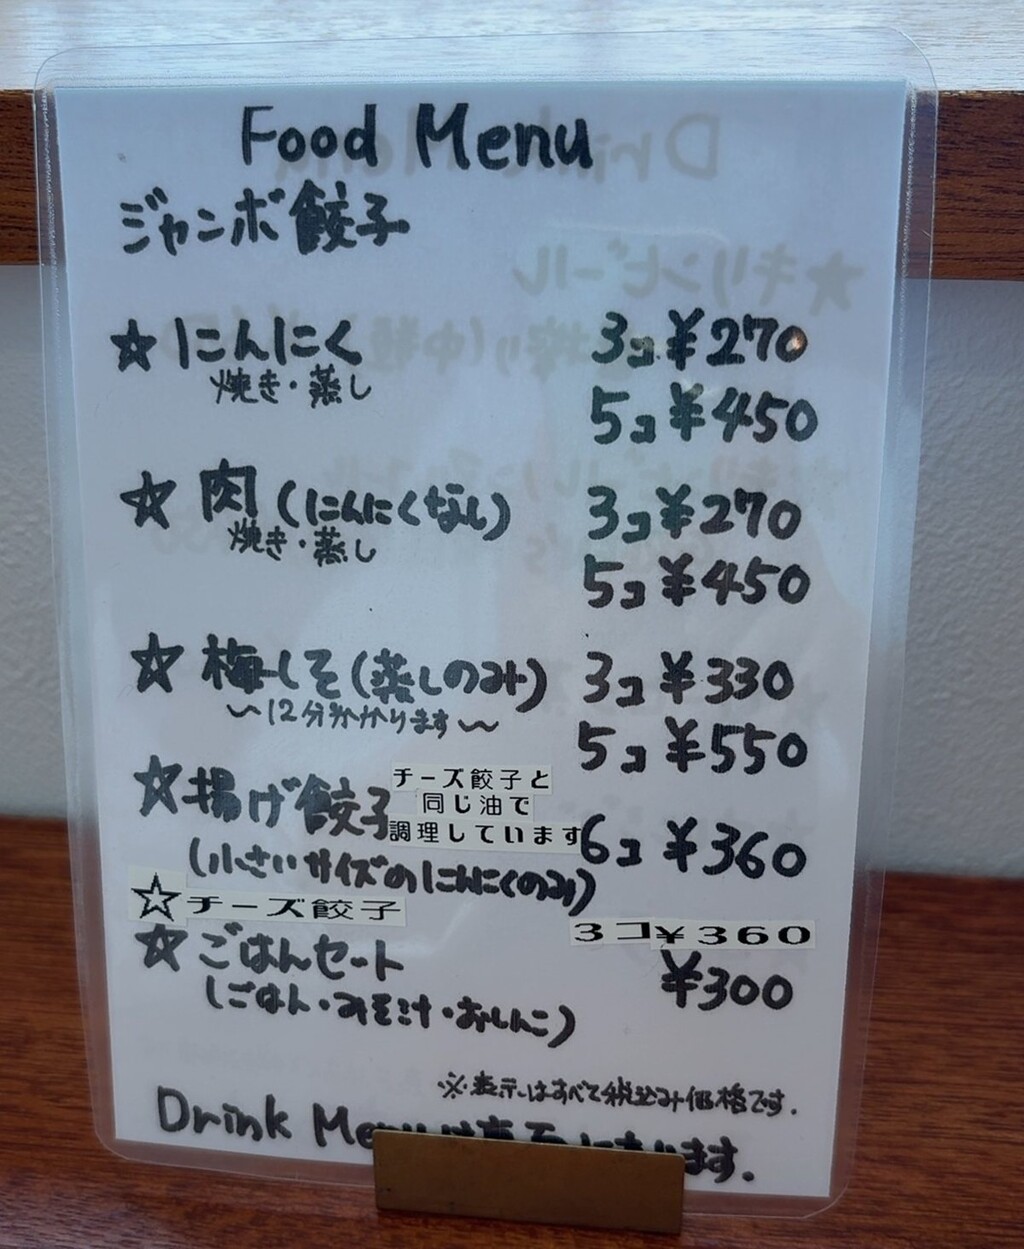 Food Menu
ジャンボ餃子
☆にんにく 3コ ¥270
焼き・蒸し
5コ ¥450
☆肉(にんにくなし) 3コ ¥270
焼き・蒸し
5コ ¥450
☆梅しそ(蒸しのみ) 3コ ¥330
~12分かかります~
5コ ¥550
☆揚げ餃子 6コ ¥360
チーズ餃子と
同じ油で
調理しています
(小さいサイズのにんにくのみ)
☆チーズ餃子 3コ¥360
☆ごはんセット ¥300
(ごはん・みそ汁・おしんこ)
※表示はすべて税込み価格です.
Drink Menu
ます.